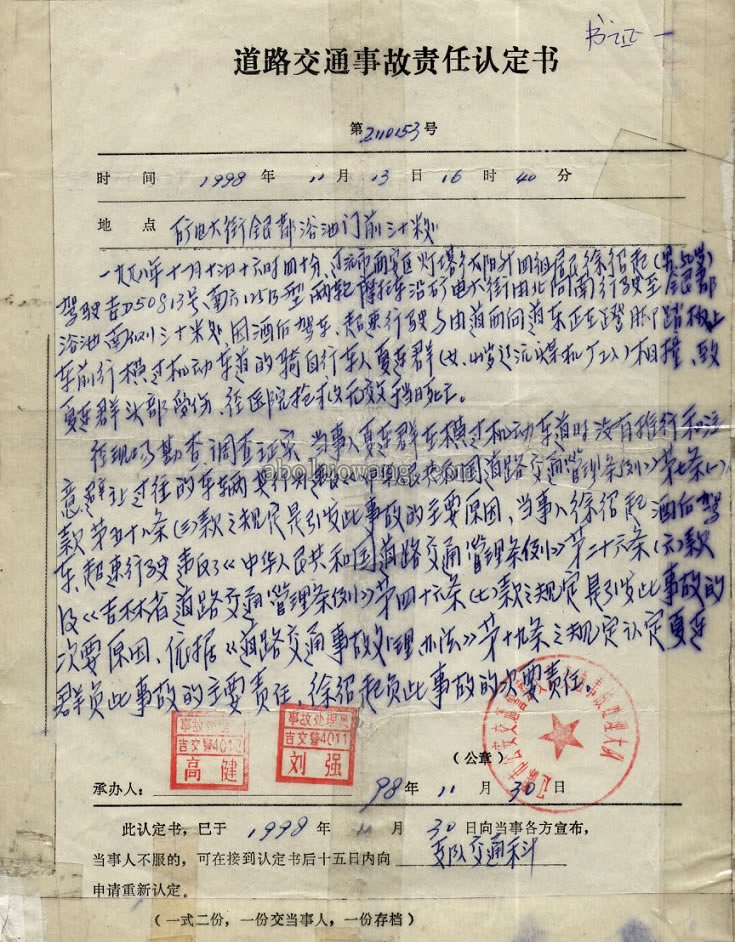 书证一
道路交通事故责任认定书
第2110153号
时 间 1998 年 11 月 13 日 16 时 40 分
地 点 矿电大街银都浴池门前三十米处
一九九八年十一月十三日十六时四十分,辽源市西安区灯塔乡太阳升四组居民徐绍起(男
驾驶吉D50813号南方125B型两轮摩托车沿矿电大街由北向南行驶至银都
浴池南侧三十米处,因酒后驾车、超速行驶与由道西向道东正在
车前行横过机动车道的骑自行车人夏连群(女、 岁辽源煤机厂工人)相撞、致
夏连群头部受伤、经医院抢救无效 死亡。
经现场勘查调查证实,当事人夏连群在横过机动车道时没有推行和注
意避让过往的车辆 中华人民共和国道路交通管理条例》第七条(一)
款第五十八条(三)款之规定是引发此事故的主要原因,当事人徐绍起酒后驾
车、超速行驶违反了《中华人民共和国道路交通管理条例》第二十六条(六)款
及《吉林省道路交通管理条例》第四十六条(七)款之规定是引发此事故的
次要原因、依据《道路交通事故处理办法》第十九条之规定认定夏连
群负此事故的主要责任,徐绍起负此事故的次要责任。
事故处理员
吉交警4012
高健
事故处理员
吉交警4011
刘强
(公章)
承办人: 98年 11 月 30 日
此认定书,已于 1998 年 11 月 30 日向当事各方宣布,
当事人不服的,可在接到认定书后十五日内向 支队交通科
申请重新认定。
(一式二份,一份交当事人,一份存档)
aboluowang.com